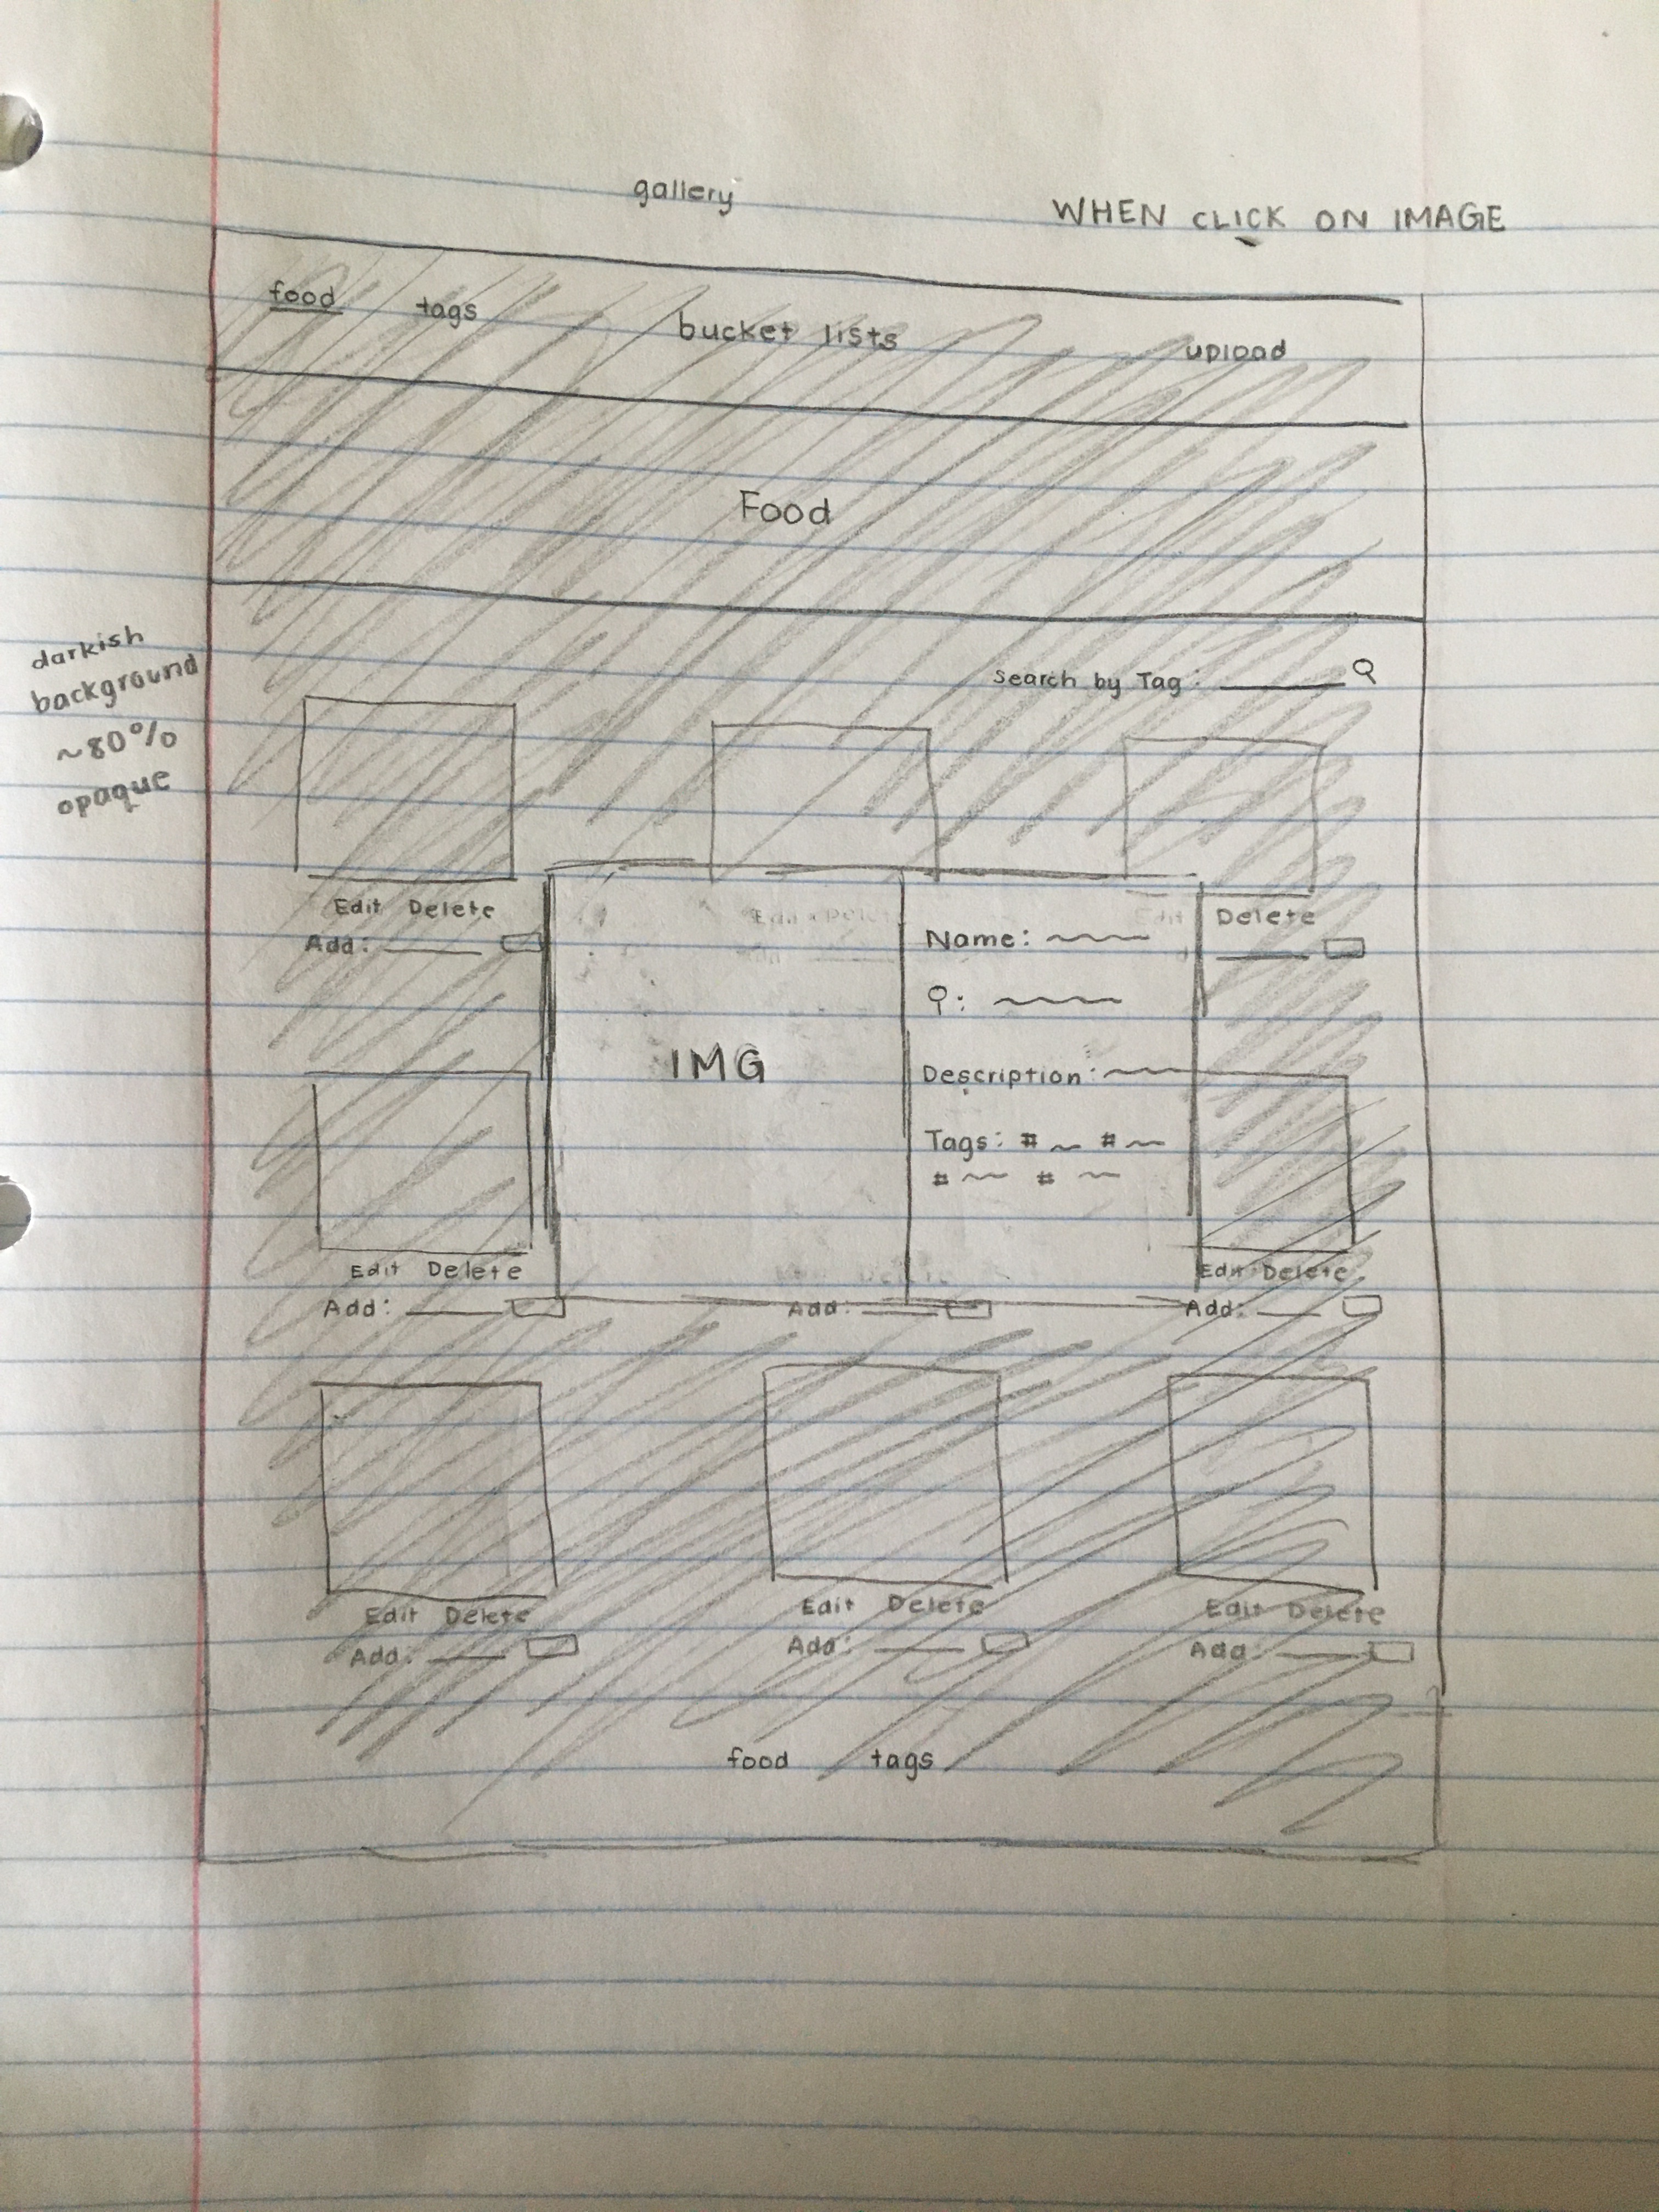 gallery
WHEN CLICK ON IMAGE
food tags bucket lists upload
Food
darkish
background
~80%
opaque
search by Tag:
Edit Delete
Edit Delete
Edit Delete
Add:
Name:
IMG
Description:
Tags: # #
# #
Edit Delete
Edit Delete
Add: Add: Add:
Edit Delete Edit Delete Edit Delete
Add: Add: Add:
food tags